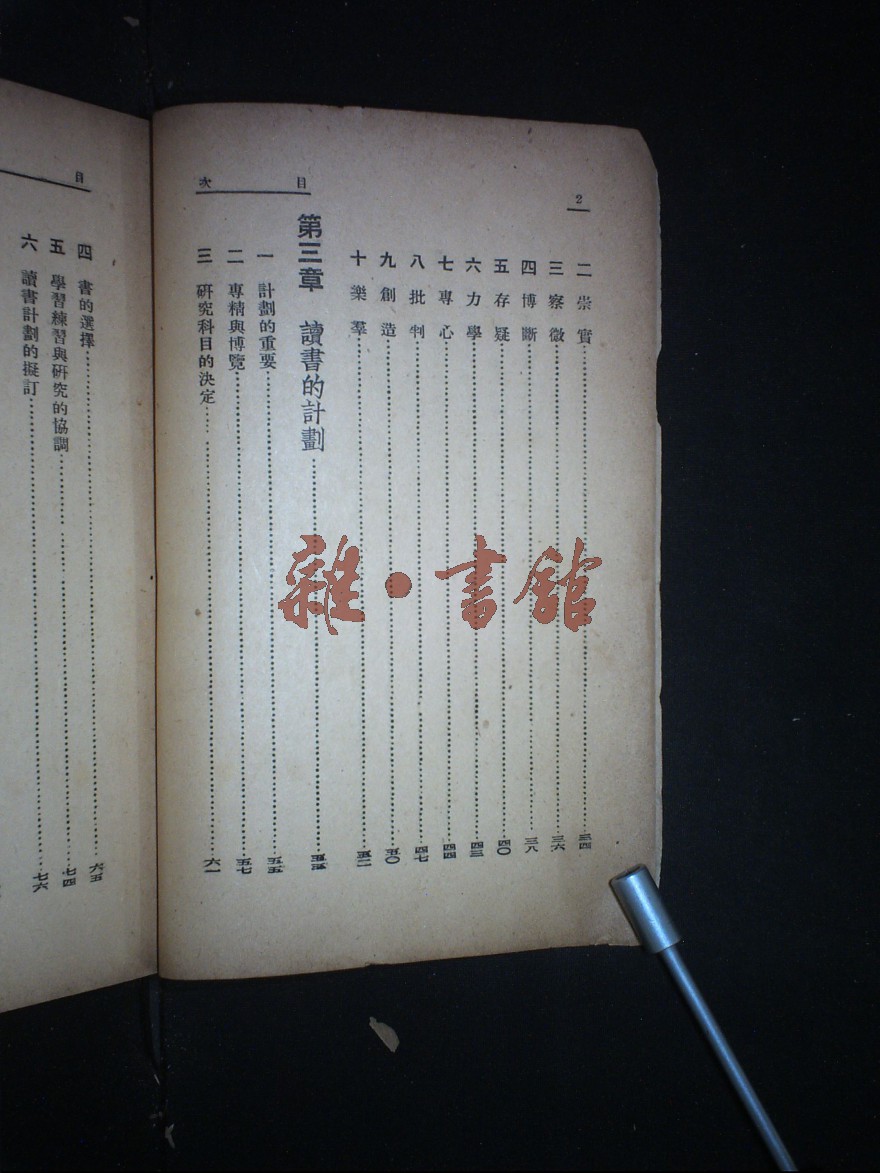 2
目次
二 崇實 三四
三 察微 三六
四 博斷 三八
五 存疑 四〇
六 力學 四三
七 專心 四四
八 批判 四七
九 創造 五〇
十 樂羣 五二
第三章 讀書的計劃
一 計劃的重要 五五
二 專精與博覽 五七
三 研究科目的決定 六一
目
四 書的選擇 六五
五 學習練習與研究的協調 七四
六 讀書計劃的擬訂 七六
雜·書館